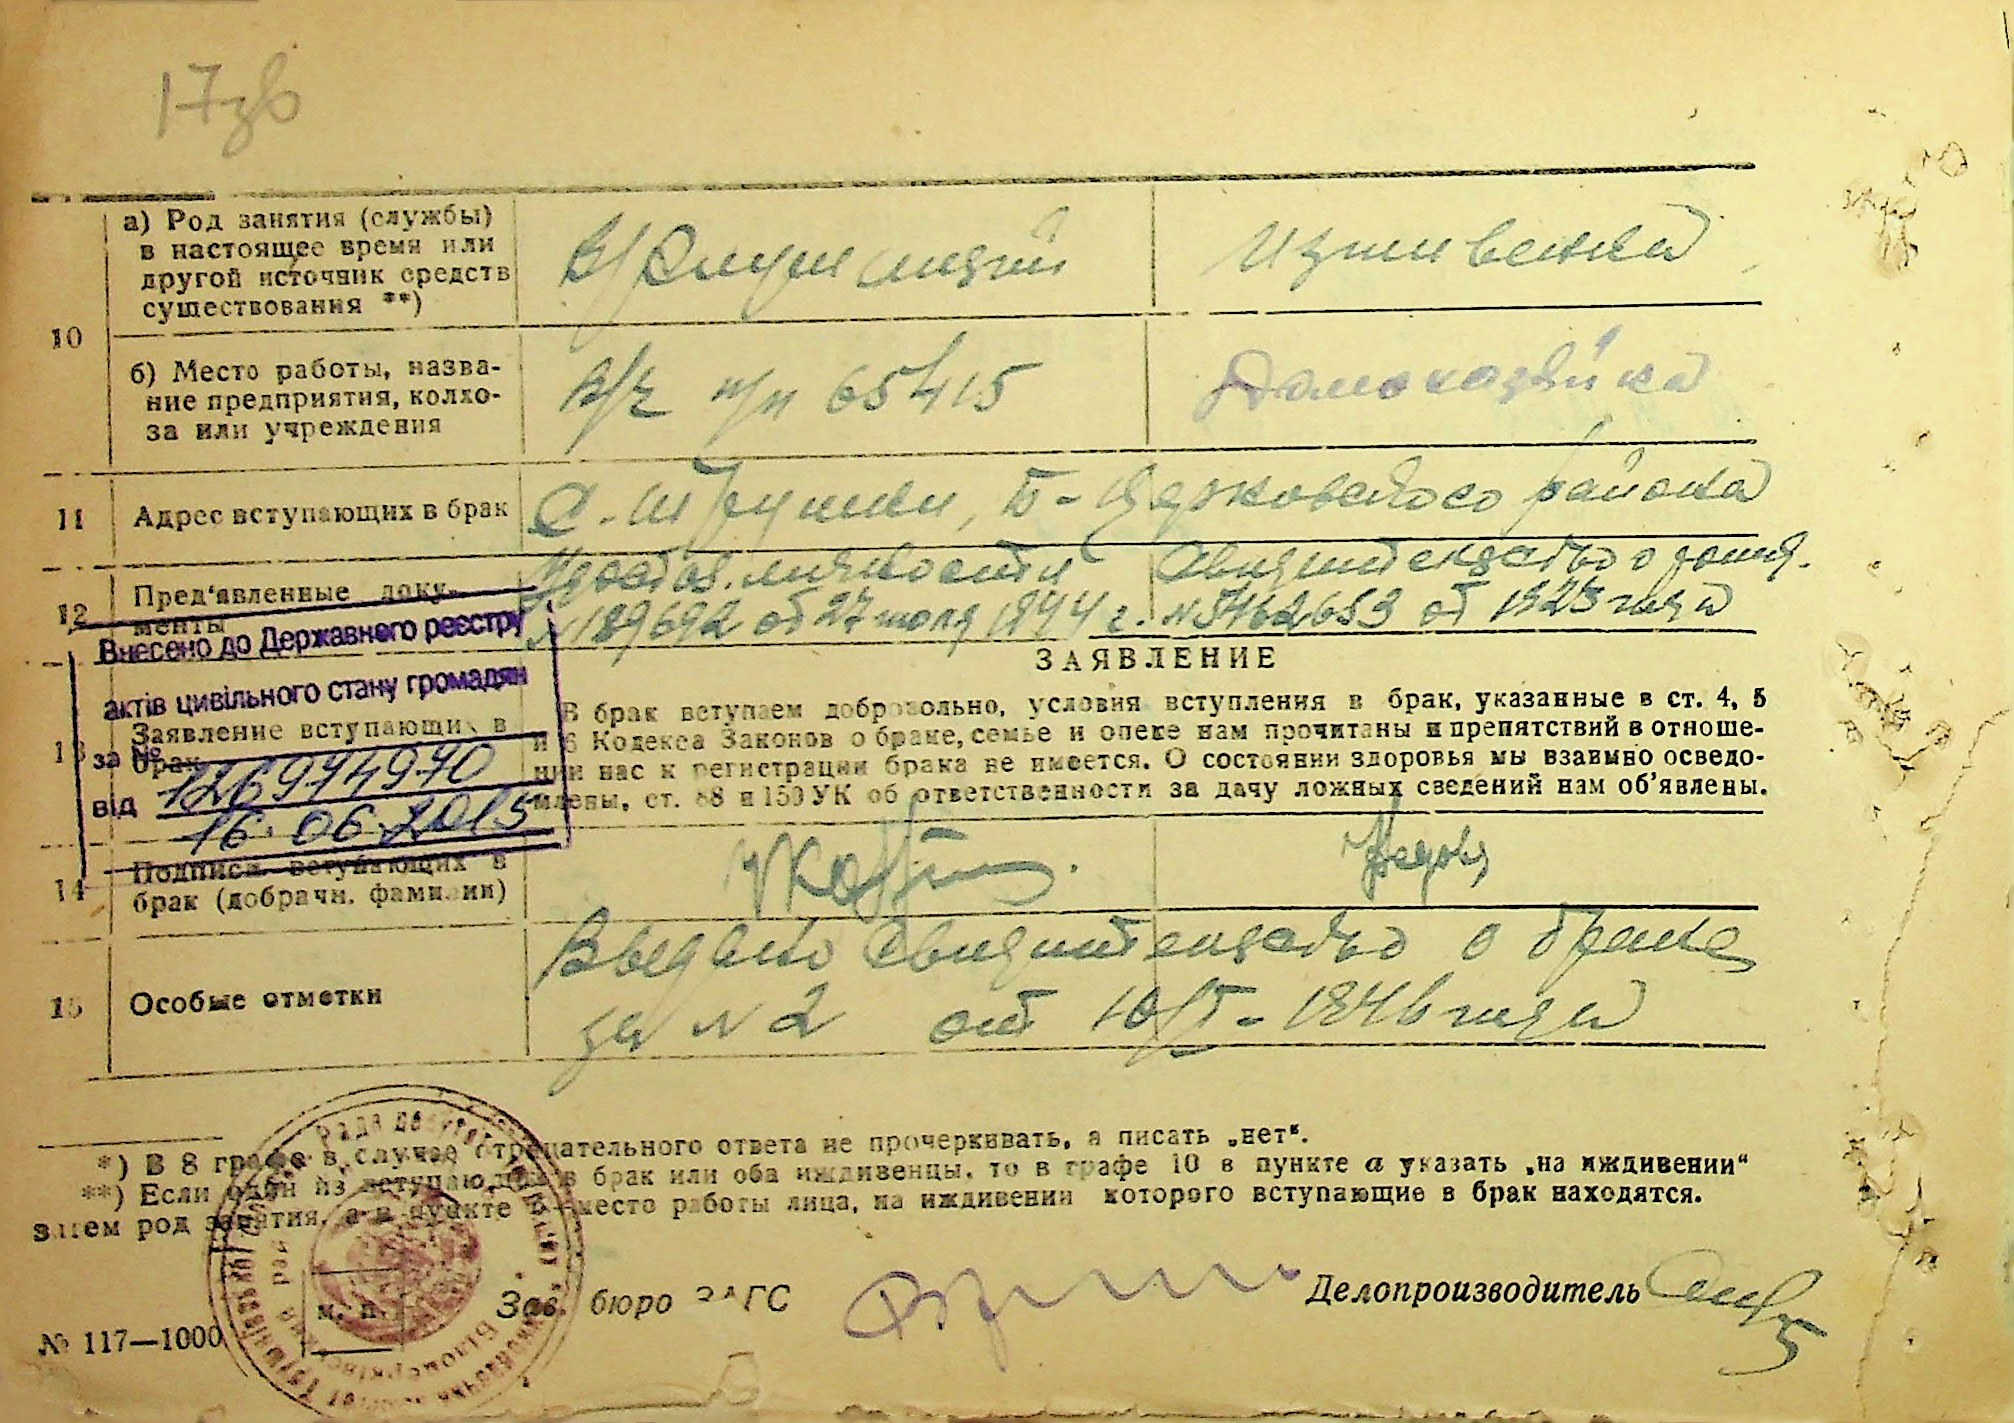 17зв
а) Род занятия (службы)
в настоящее время или
другой источник средств
существования **)
В/Служащий
Иждивенка
10
б) Место работы, назва-
ние предприятия, колхо-
за или учреждения
В/ч п/п 65415
Домохозяйка
11
Адрес вступающих в брак
С. Трушки, Б-Церковского района
12
Пред'явленные доку-
менты
Удостов. личности
№ 189692 от 27 1944 г.
Свидительство о рожд.
№ 5462653 от 1923 года
Внесено до Державного реєстру
актів цивільного стану громадян
за № 126974970
від 16.06.2015
ЗАЯВЛЕНИЕ
13
Заявление вступающих в
брак
В брак вступаем добровольно, условия вступления в брак, указанные в ст. 4, 5
и 6 Кодекса Законов о браке, семье и опеке нам прочитаны и препятствий в отноше-
нии нас к регистрации брака не имеется. О состоянии здоровья мы взаимно осведо-
млены, ст. 88 и 150 УК об ответственности за дачу ложных сведений нам об'явлены.
14
Подписи вступающих в
брак (добрачн. фамилии)
15
Особые отметки
Выдано свидительство о браке
за № 2 от 10/I-1946 года
*) В 8 графе в случае отрицательного ответа не прочеркивать, а писать „нет“.
**) Если один из вступающих в брак или оба иждивенцы, то в графе 10 в пункте а указать „на иждивении“
затем род занятия, а в пункте б—место работы лица, на иждивении которого вступающие в брак находятся.
м. п.
Зав. бюро ЗАГС
Делопроизводитель
№ 117—1000